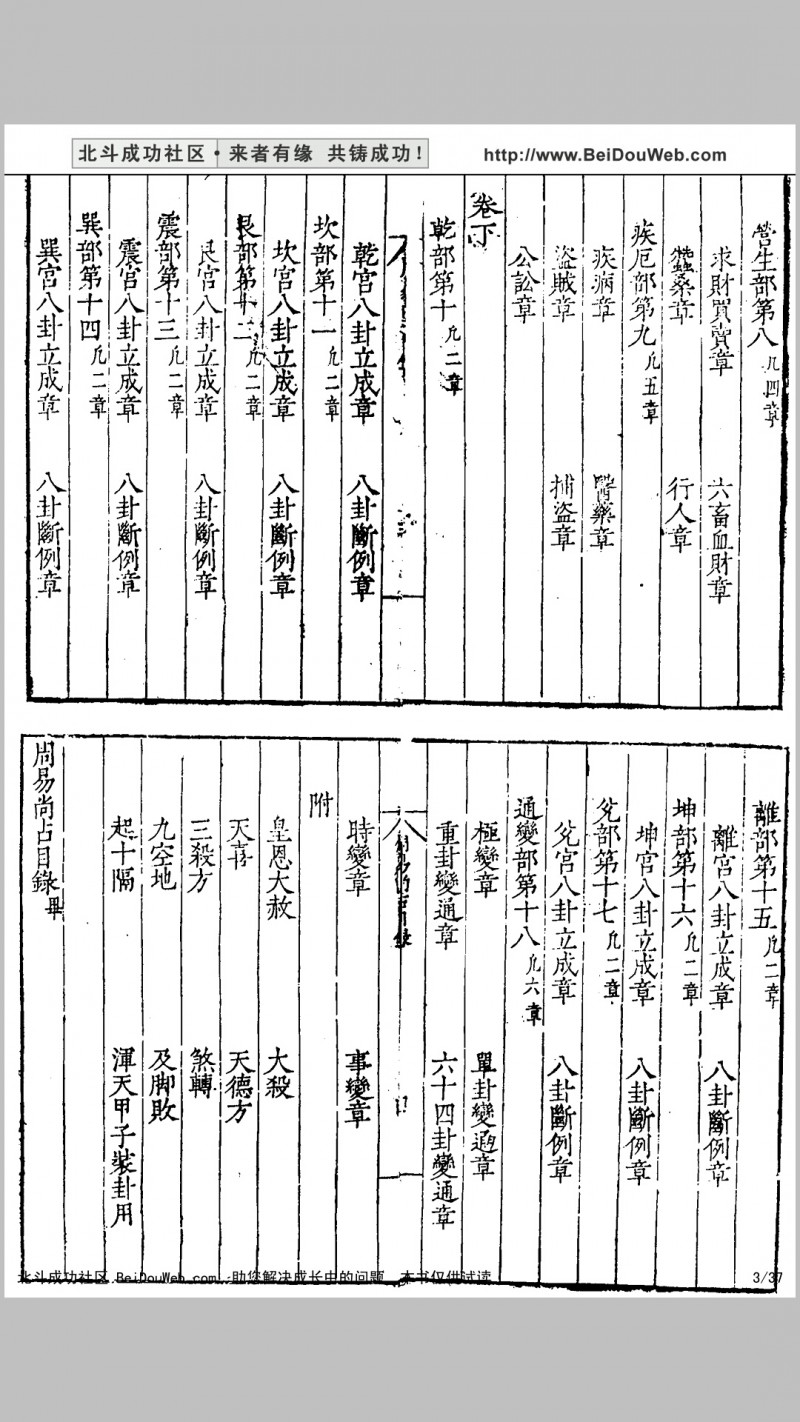 北斗成功社区·来者有缘 共铸成功！ http://www.BeiDouWeb.com
營生部第八 凡四章
求財買賣章 六畜血財章
蠶桑章 行人章
疾厄部第九 凡五章
疾病章 醫藥章
盜賊章 捕盜章
公訟章
卷下
乾部第十 凡二章
乾宫八卦立成章 八卦斷例章
坎部第十一 凡二章
坎宫八卦立成章 八卦斷例章
艮部第十二 凡二章
艮宫八卦立成章 八卦斷例章
震部第十三 凡二章
震宫八卦立成章 八卦斷例章
巽部第十四 凡二章
巽宫八卦立成章 八卦斷例章
離部第十五 凡二章
離宫八卦立成章 八卦斷例章
坤部第十六 凡二章
坤宫八卦立成章 八卦斷例章
兌部第十七 凡二章
兌宫八卦立成章 八卦斷例章
通變部第十八 凡六章
極變章 單卦變通章
重卦變通章 六十四卦變通章
時變章 事變章
附
皇恩大赦 大殺
天喜 天德方
三殺方 煞轉
九空地 及脚敗
起十隔 渾天甲子裝卦用
周易尚占目錄畢
北斗成功社区 BeiDouWeb.com -助您解决成长中的问题 本书仅供试读 3/37